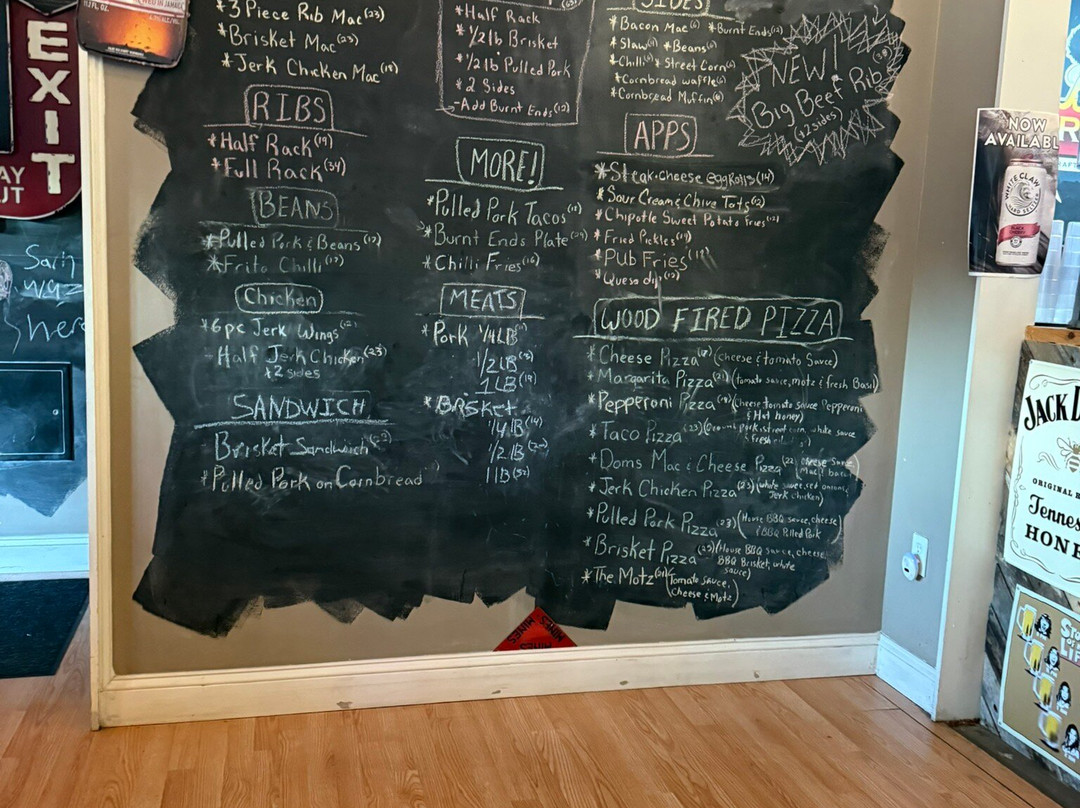 11.2 FL OZ.
EXIT
Sarh
wuz
here
*3 Piece Rib Mac (23)
*Brisket Mac (23)
*Jerk Chicken Mac (18)
RIBS
*Half Rack (19)
*Full Rack (34)
BEANS
*Pulled Pork & Beans (12)
*Frito Chilli (12)
Chicken
*6pc Jerk Wings (12)
-Half Jerk Chicken (23)
+2 sides
SANDWICH
Brisket Sandwich
*Pulled Pork on Cornbread
*Half Rack
*1/2 lb Brisket
*1/2 lb Pulled Pork
*2 Sides
-Add Burnt Ends (12)
MORE!
*Pulled Pork Tacos
*Burnt Ends Plate (24)
*Chilli Fries (16)
MEATS
*Pork 1/4 LB
1/2 LB
1 LB (19)
*BRISKET
1/4 LB (14)
1/2 LB
1 LB (52)
SIDES
*Bacon Mac *Burnt Ends (12)
*Slaw *Beans
*Chilli *Street Corn
*Cornbread waffle
*Cornbread Muffin
NEW!
Big Beef Rib
(+2 sides)
APPS
*Steak-Cheese eggRolls (14)
*Sour Cream & Chive Tots (12)
*Chipotle Sweet Potato Fries (12)
*Fried Pickles (14)
*PUB FRIES
*Queso dip
WOOD FIRED PIZZA
*Cheese Pizza (cheese & tomato sauce)
*Margarita Pizza (21) (tomato sauce, motz & fresh Basil)
*Pepperoni Pizza (cheese tomato sauce Pepperoni
& Hot honey)
*Taco Pizza (23) (Ground pork, street corn, white sauce
& fresh
*Doms Mac & Cheese Pizza (22) (Cheese Sauce
Mac & bacon)
*Jerk Chicken Pizza (23) (white sauce, red onions,
Jerk chicken)
*Pulled Pork Pizza (23) (House BBQ sauce, cheese
& BBQ Pulled Pork
*Brisket Pizza (25) (House BBQ sauce, cheese
BBQ Brisket, white
sauce)
*The Motz (21) (Tomato sauce,
Cheese & Motz)
MINES
MINES
NOW
AVAILABL
WHITE CLAW
HARD SELTZER
JACK D
ORIGINAL R
Tennes
HONE